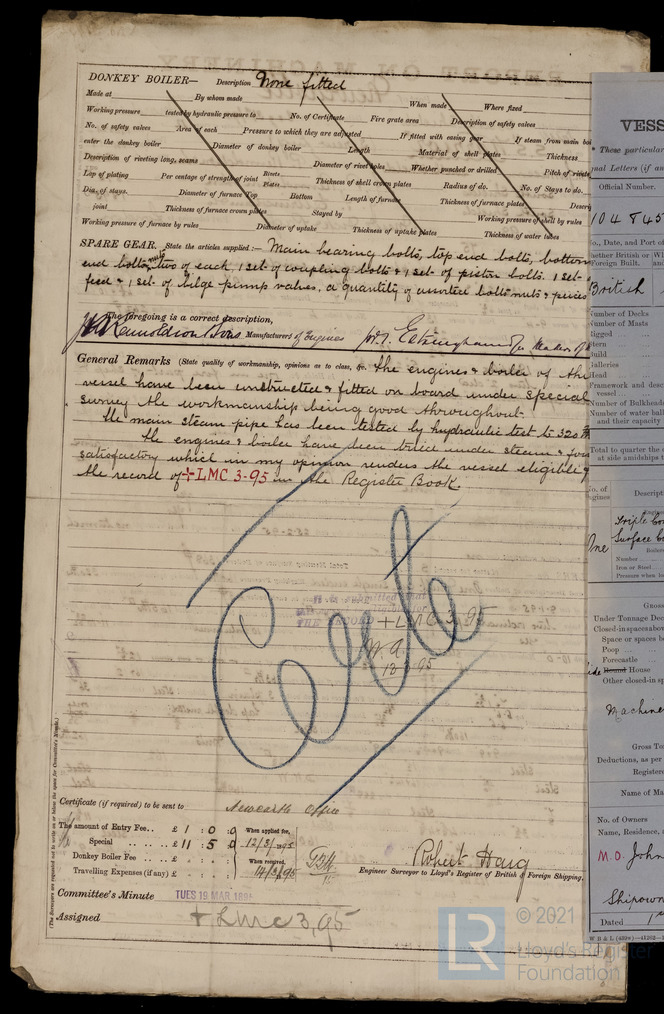 DONKEY BOILER— Description None fitted
Made at By whom made When made Where fixed
Working pressure tested by hydraulic pressure to No. of Certificate Fire grate area Description of safety valves
No. of safety valves Area of each Pressure to which they are adjusted If fitted with easing gear If steam from main boi
enter the donkey boiler Diameter of donkey boiler Length Material of shell plates Thickness
Description of riveting long. seams Diameter of rivet holes Whether punched or drilled Pitch of rivets
Lap of plating Per centage of strength of joint Rivets Plates Thickness of shell crown plates Radius of do. No. of Stays to do.
Dia. of stays. Diameter of furnace Top Bottom Length of furnace Thickness of furnace plates Descri
joint Thickness of furnace crown plates Stayed by Working pressure of shell by rules
Working pressure of furnace by rules Diameter of uptake Thickness of uptake plates Thickness of water tubes
SPARE GEAR. State the articles supplied:— Main bearing bolts, top end bolts, bottom
end bolts, two of each, 1 set of coupling bolts & 1 set of piston bolts. 1 set
feed & 1 set of bilge pump valves, a quantity of assorted bolts nuts & pieces
The foregoing is a correct description,
Manufacturers of Engines
General Remarks (State quality of workmanship, opinions as to class, &c. The engines & boiler of the
vessel have been constructed & fitted on board under special
survey the workmanship being good throughout.
The main steam pipe has been tested by hydraulic test to 320
The engines & boiler have been tried under steam & foun
satisfactory which in my opinion renders the vessel eligible
the record of + LMC 3-95 in the Register Book.
+ LMC 3.95
W.A.
Certificate (if required) to be sent to Newcastle Office
The amount of Entry Fee.. £ 1 : 0 : 0 When applied for,
Special £ 11 : 5 0 12/3/1895
Donkey Boiler Fee £ : : When received,
Travelling Expenses (if any) £ : : 14/3/95
Robert Haig
Engineer Surveyor to Lloyd's Register of British & Foreign Shipping.
Committee's Minute TUES 19 MAR 1895
Assigned + LMC 3,95
VESS
* These particular
nal Letters (if an
Official Number.
104845
No., Date, and Port of
Whether British or
Foreign Built.
British
Number of Decks
Number of Masts
Rigged
Stern
Build
Galleries
Head
Framework and desc
vessel
Number of Bulkheads
Number of water bal
and their capacity
Total to quarter the d
at side amidships t
No. of
Engines
Descript
One
Triple Com
Surface Co
Number
Iron or Steel
Pressure when l
GROSS
Under Tonnage Dec
Closed-in spaces above
Space or spaces b
Poop
Forecastle
Side Round House
Other closed-in sp
Machine
Gross To
Deductions, as per
Registere
Name of Ma
No. of Owners
Name, Residence, a
M.O. John
Shipown
Dated 1st
© 2021
LR
Lloyd's Register
Foundation